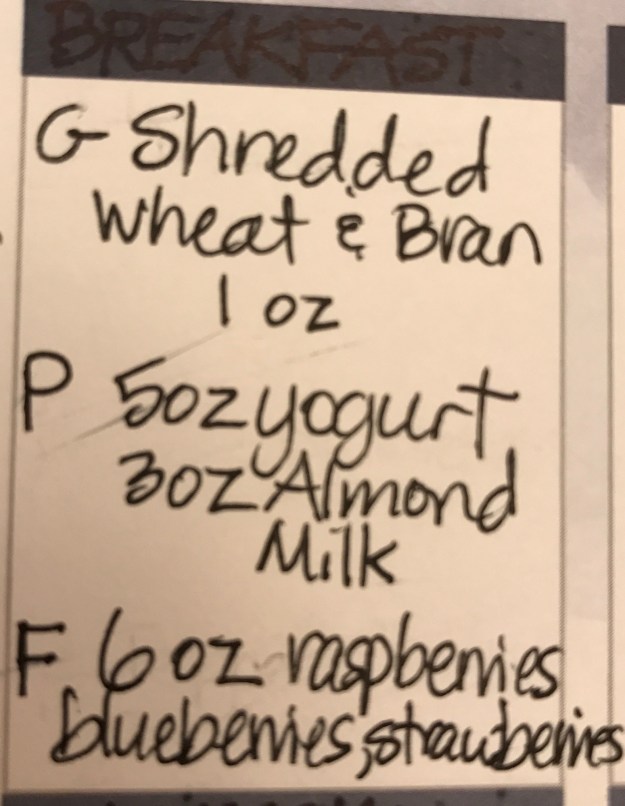 BREAKFAST
G Shredded
Wheat & Bran
1 oz
P 5oz yogurt
3oz Almond
Milk
F 6 oz raspberries
blueberries, strawberries